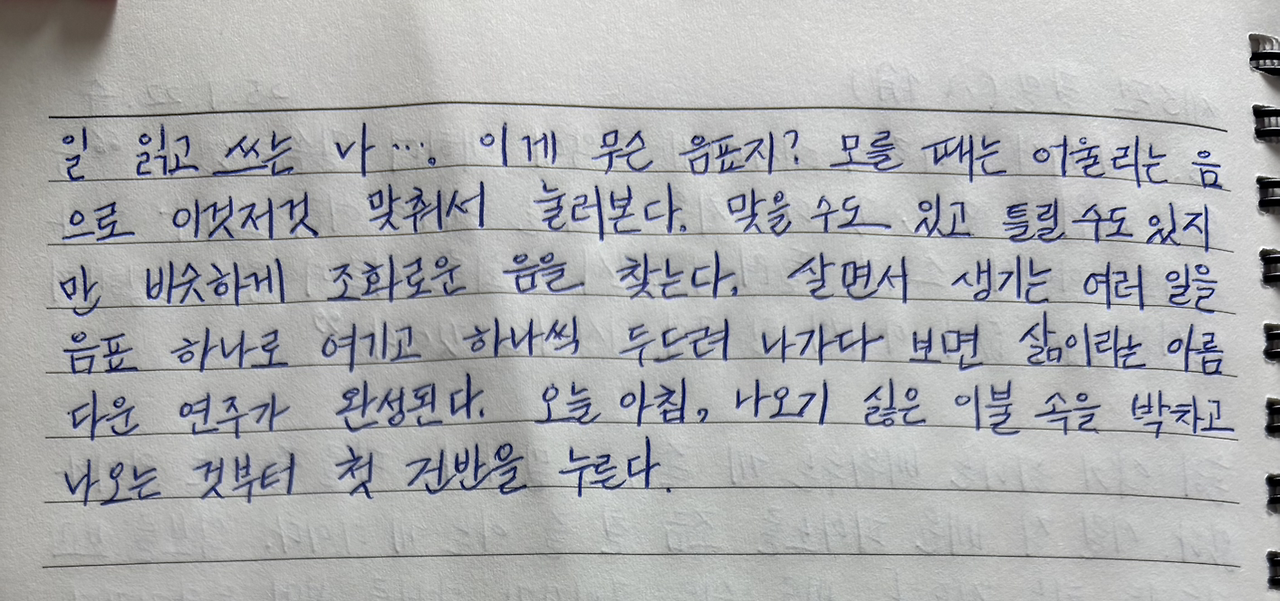 일 읽고 쓰는 나···. 이게 무슨 음표지? 모를 때는 어울리는 음
으로 이것저것 맞춰서 눌러본다. 맞을 수도 있고 틀릴 수도 있지
만 비슷하게 조화로운 음을 찾는다. 살면서 생기는 여러 일을
음표 하나로 여기고 하나씩 두드려 나가다 보면 삶이라는 아름
다운 연주가 완성된다. 오늘 아침, 나오기 싫은 이불 속을 박차고
나오는 것부터 첫 건반을 누른다.